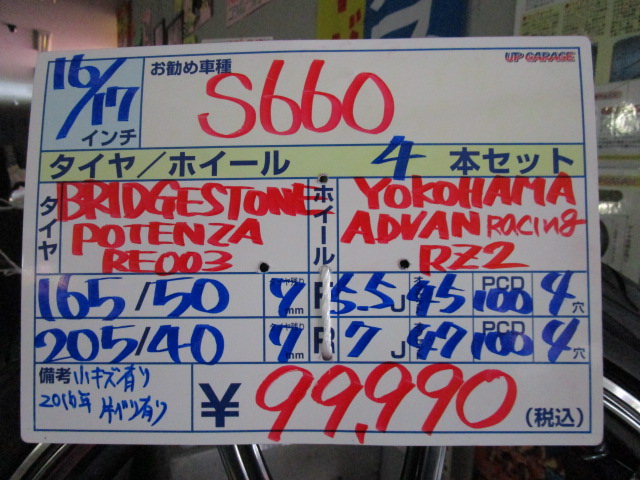 UP GARAGE
16/17インチ お勧め車種 S660
タイヤ/ホイール 4本セット
タイヤ BRIDGESTONE ホイール YOKOHAMA
POTENZA ADVAN RACING
RE003 RZ2
165/50 7mm 5.5J 45 PCD 100 4穴
205/40 7mm 7J 47 PCD 100 4穴
備考 小キズ有り
2016年 片べり有り
¥99,990 (税込)